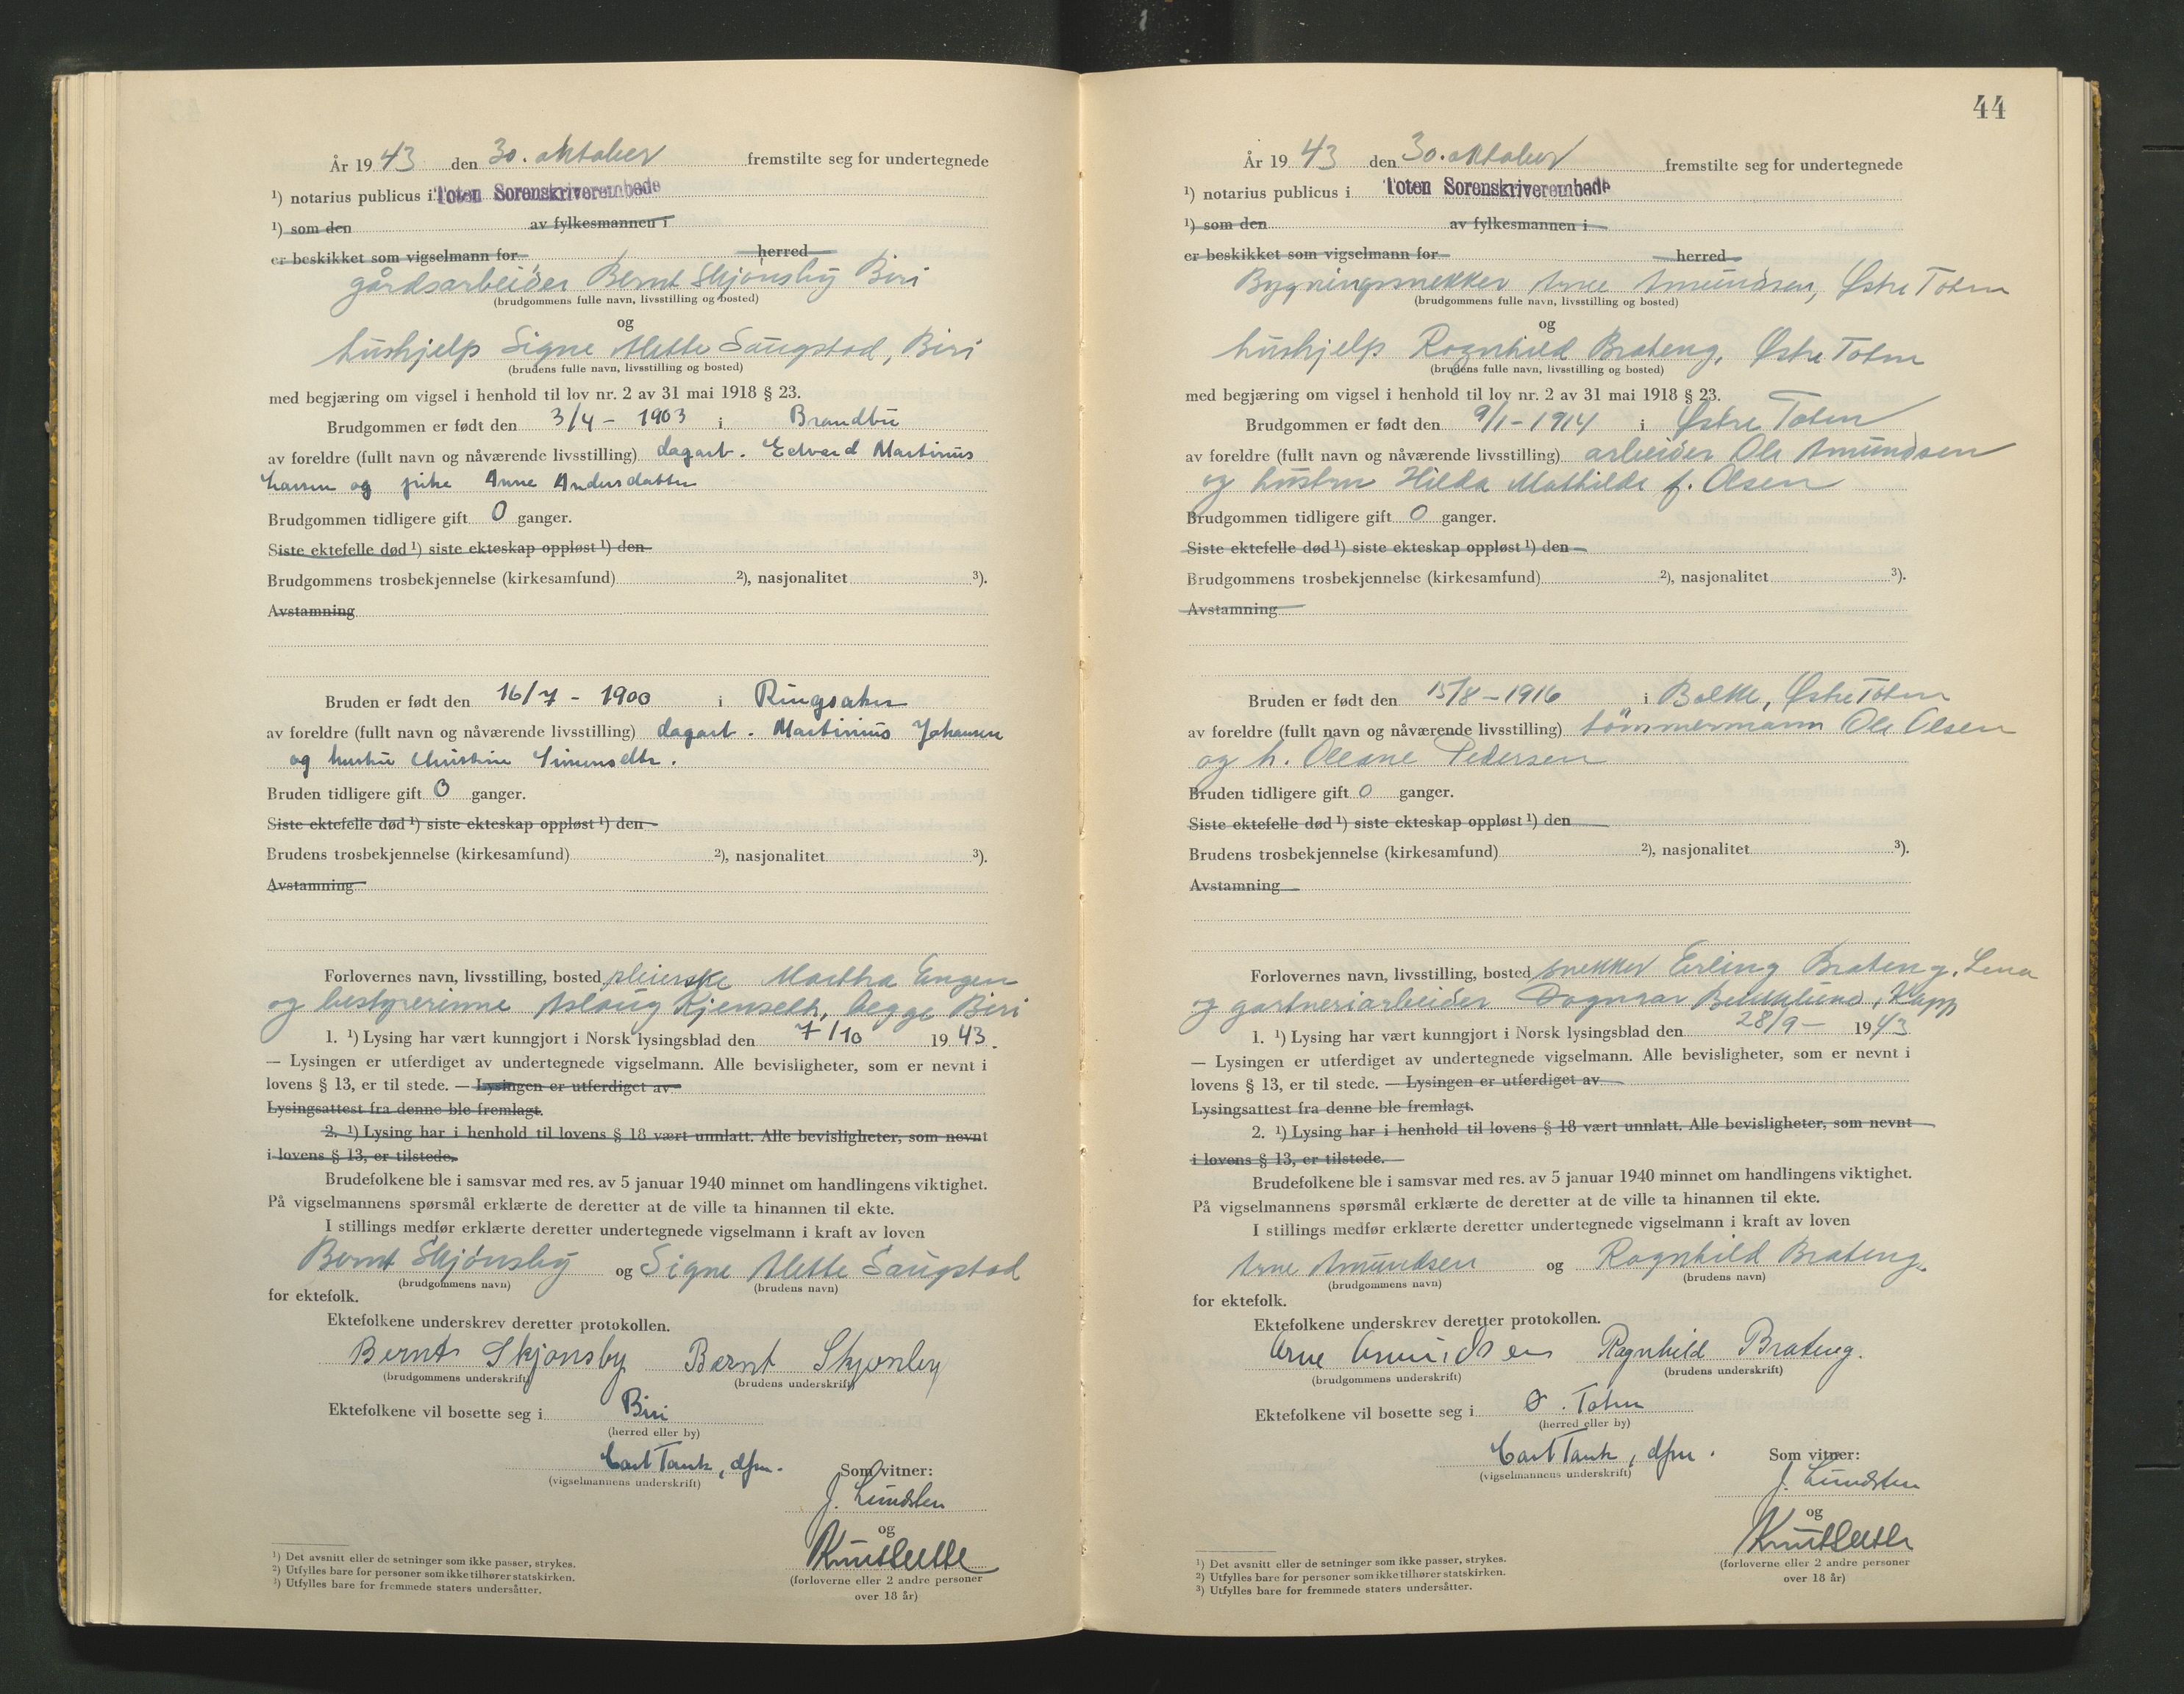 År 19 43 den 30. oktober fremstilte seg for undertegnede
¹) notarius publicus i Toten Sorenskriverembede
¹) som den av fylkesmannen i
er beskikket som vigselmann for herred
gårdsarbeider Bernt Skjønsby Biri
(brudgommens fulle navn, livsstilling og bosted)
og
hushjelp Signe Alette Saugstad, Biri
(brudens fulle navn, livsstilling og bosted)
med begjæring om vigsel i henhold til lov nr. 2 av 31 mai 1918 § 23.
Brudgommen er født den 3/4 - 1903 i Brandbu
av foreldre (fullt navn og nåværende livsstilling) dagarb. Edvard Martinius
Larsen og pike Anne Andersdatter
Brudgommen tidligere gift 0 ganger.
Siste ektefelle død ¹) siste ekteskap oppløst ¹) den
Brudgommens trosbekjennelse (kirkesamfund) ²), nasjonalitet ³).
Avstamning
Bruden er født den 16/7 - 1900 i Ringsaker
av foreldre (fullt navn og nåværende livsstilling) dagarb. Martinius Johansen
og hustru Christine Simensdtr.
Bruden tidligere gift 0 ganger.
Siste ektefelle død ¹) siste ekteskap oppløst ¹) den
Brudens trosbekjennelse (kirkesamfund) ²), nasjonalitet ³).
Avstamning
Forlovernes navn, livsstilling, bosted pleierske Martha Engen
og bestyrerinne Aslaug Kjenseth, begge Biri
1. ¹) Lysing har vært kunngjort i Norsk lysingsblad den 7/10 19 43.
— Lysingen er utferdiget av undertegnede vigselmann. Alle bevisligheter, som er nevnt i
lovens § 13, er til stede. — Lysingen er utferdiget av
Lysingsattest fra denne ble fremlagt.
2. ¹) Lysing har i henhold til lovens § 18 vært unnlatt. Alle bevisligheter, som nevnt
i lovens § 13, er tilstede.
Brudefolkene ble i samsvar med res. av 5 januar 1940 minnet om handlingens viktighet.
På vigselmannens spørsmål erklærte de deretter at de ville ta hinannen til ekte.
I stillings medfør erklærte deretter undertegnede vigselmann i kraft av loven
Bernt Skjønsby og Signe Alette Saugstad
(brudgommens navn) (brudens navn)
for ektefolk.
Ektefolkene underskrev deretter protokollen.
Bernt Skjønsby Bernt Skjønsby
(brudgommens underskrift) (brudens underskrift)
Ektefolkene vil bosette seg i Biri
(herred eller by)
Carl Tank, dfm.
(vigselmannens underskrift)
Som vitner:
J. Lundsten
og
(forloverne eller 2 andre personer
over 18 år)
¹) Det avsnitt eller de setninger som ikke passer, strykes.
²) Utfylles bare for personer som ikke tilhører statskirken.
³) Utfylles bare for fremmede staters undersåtter.
44
År 19 43 den 30. oktober fremstilte seg for undertegnede
¹) notarius publicus i Toten Sorenskriverembede
¹) som den av fylkesmannen i
er beskikket som vigselmann for herred
Bygningssnekker Arne Amundsen, Østre Toten
(brudgommens fulle navn, livsstilling og bosted)
og
hushjelp Ragnhild Brateng, Østre Toten
(brudens fulle navn, livsstilling og bosted)
med begjæring om vigsel i henhold til lov nr. 2 av 31 mai 1918 § 23.
Brudgommen er født den 9/1 - 1914 i Østre Toten
av foreldre (fullt navn og nåværende livsstilling) arbeider Ole Amundsen
og hustru Hilda Mathilde f. Olsen
Brudgommen tidligere gift 0 ganger.
Siste ektefelle død ¹) siste ekteskap oppløst ¹) den
Brudgommens trosbekjennelse (kirkesamfund) ²), nasjonalitet ³).
Avstamning
Bruden er født den 15/8 - 1916 i Balke, Østre Toten
av foreldre (fullt navn og nåværende livsstilling) tømmermann Ole Olsen
og h. Oleane Pedersen
Bruden tidligere gift 0 ganger.
Siste ektefelle død ¹) siste ekteskap oppløst ¹) den
Brudens trosbekjennelse (kirkesamfund) ²), nasjonalitet ³).
Avstamning
Forlovernes navn, livsstilling, bosted snekker Erling Brateng, Lena
og gartneriarbeider Dagmar Bekklund, Kapp
1. ¹) Lysing har vært kunngjort i Norsk lysingsblad den 28/9 - 19 43
— Lysingen er utferdiget av undertegnede vigselmann. Alle bevisligheter, som er nevnt i
lovens § 13, er til stede. — Lysingen er utferdiget av
Lysingsattest fra denne ble fremlagt.
2. ¹) Lysing har i henhold til lovens § 18 vært unnlatt. Alle bevisligheter, som nevnt
i lovens § 13, er tilstede.
Brudefolkene ble i samsvar med res. av 5 januar 1940 minnet om handlingens viktighet.
På vigselmannens spørsmål erklærte de deretter at de ville ta hinannen til ekte.
I stillings medfør erklærte deretter undertegnede vigselmann i kraft av loven
Arne Amundsen og Ragnhild Brateng.
(brudgommens navn) (brudens navn)
for ektefolk.
Ektefolkene underskrev deretter protokollen.
Arne Amundsen Ragnhild Brateng.
(brudgommens underskrift) (brudens underskrift)
Ektefolkene vil bosette seg i Ø. Toten
(herred eller by)
Carl Tank, dfm.
(vigselmannens underskrift)
Som vitner:
J. Lundsten
og
(forloverne eller 2 andre personer
over 18 år)
¹) Det avsnitt eller de setninger som ikke passer, strykes.
²) Utfylles bare for personer som ikke tilhører statskirken.
³) Utfylles bare for fremmede staters undersåtter.